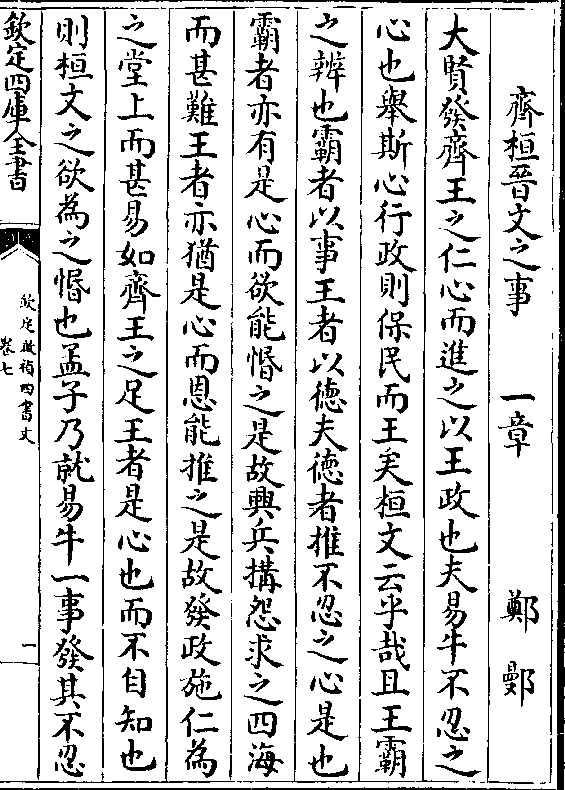 齊桓晉文之事 一章 鄭鄤
大賢發齊王之仁心而進之以王政也夫易牛不忍之
心也舉斯心行政則保民而王矣桓文云乎哉且王霸
之辨也霸者以事王者以德夫德者推不忍之心是也
霸者亦有是心而欲能惛之是故興兵搆怨求之四海
而甚難王者亦猶是心而恩能推之是故發政施仁為
之堂上而甚易如齊王之足王者是心也而不自知也
則桓文之欲為之惛也孟子乃就易牛一事發其不忍
欽定四庫全書
欽定啟禎四書文
卷七
一